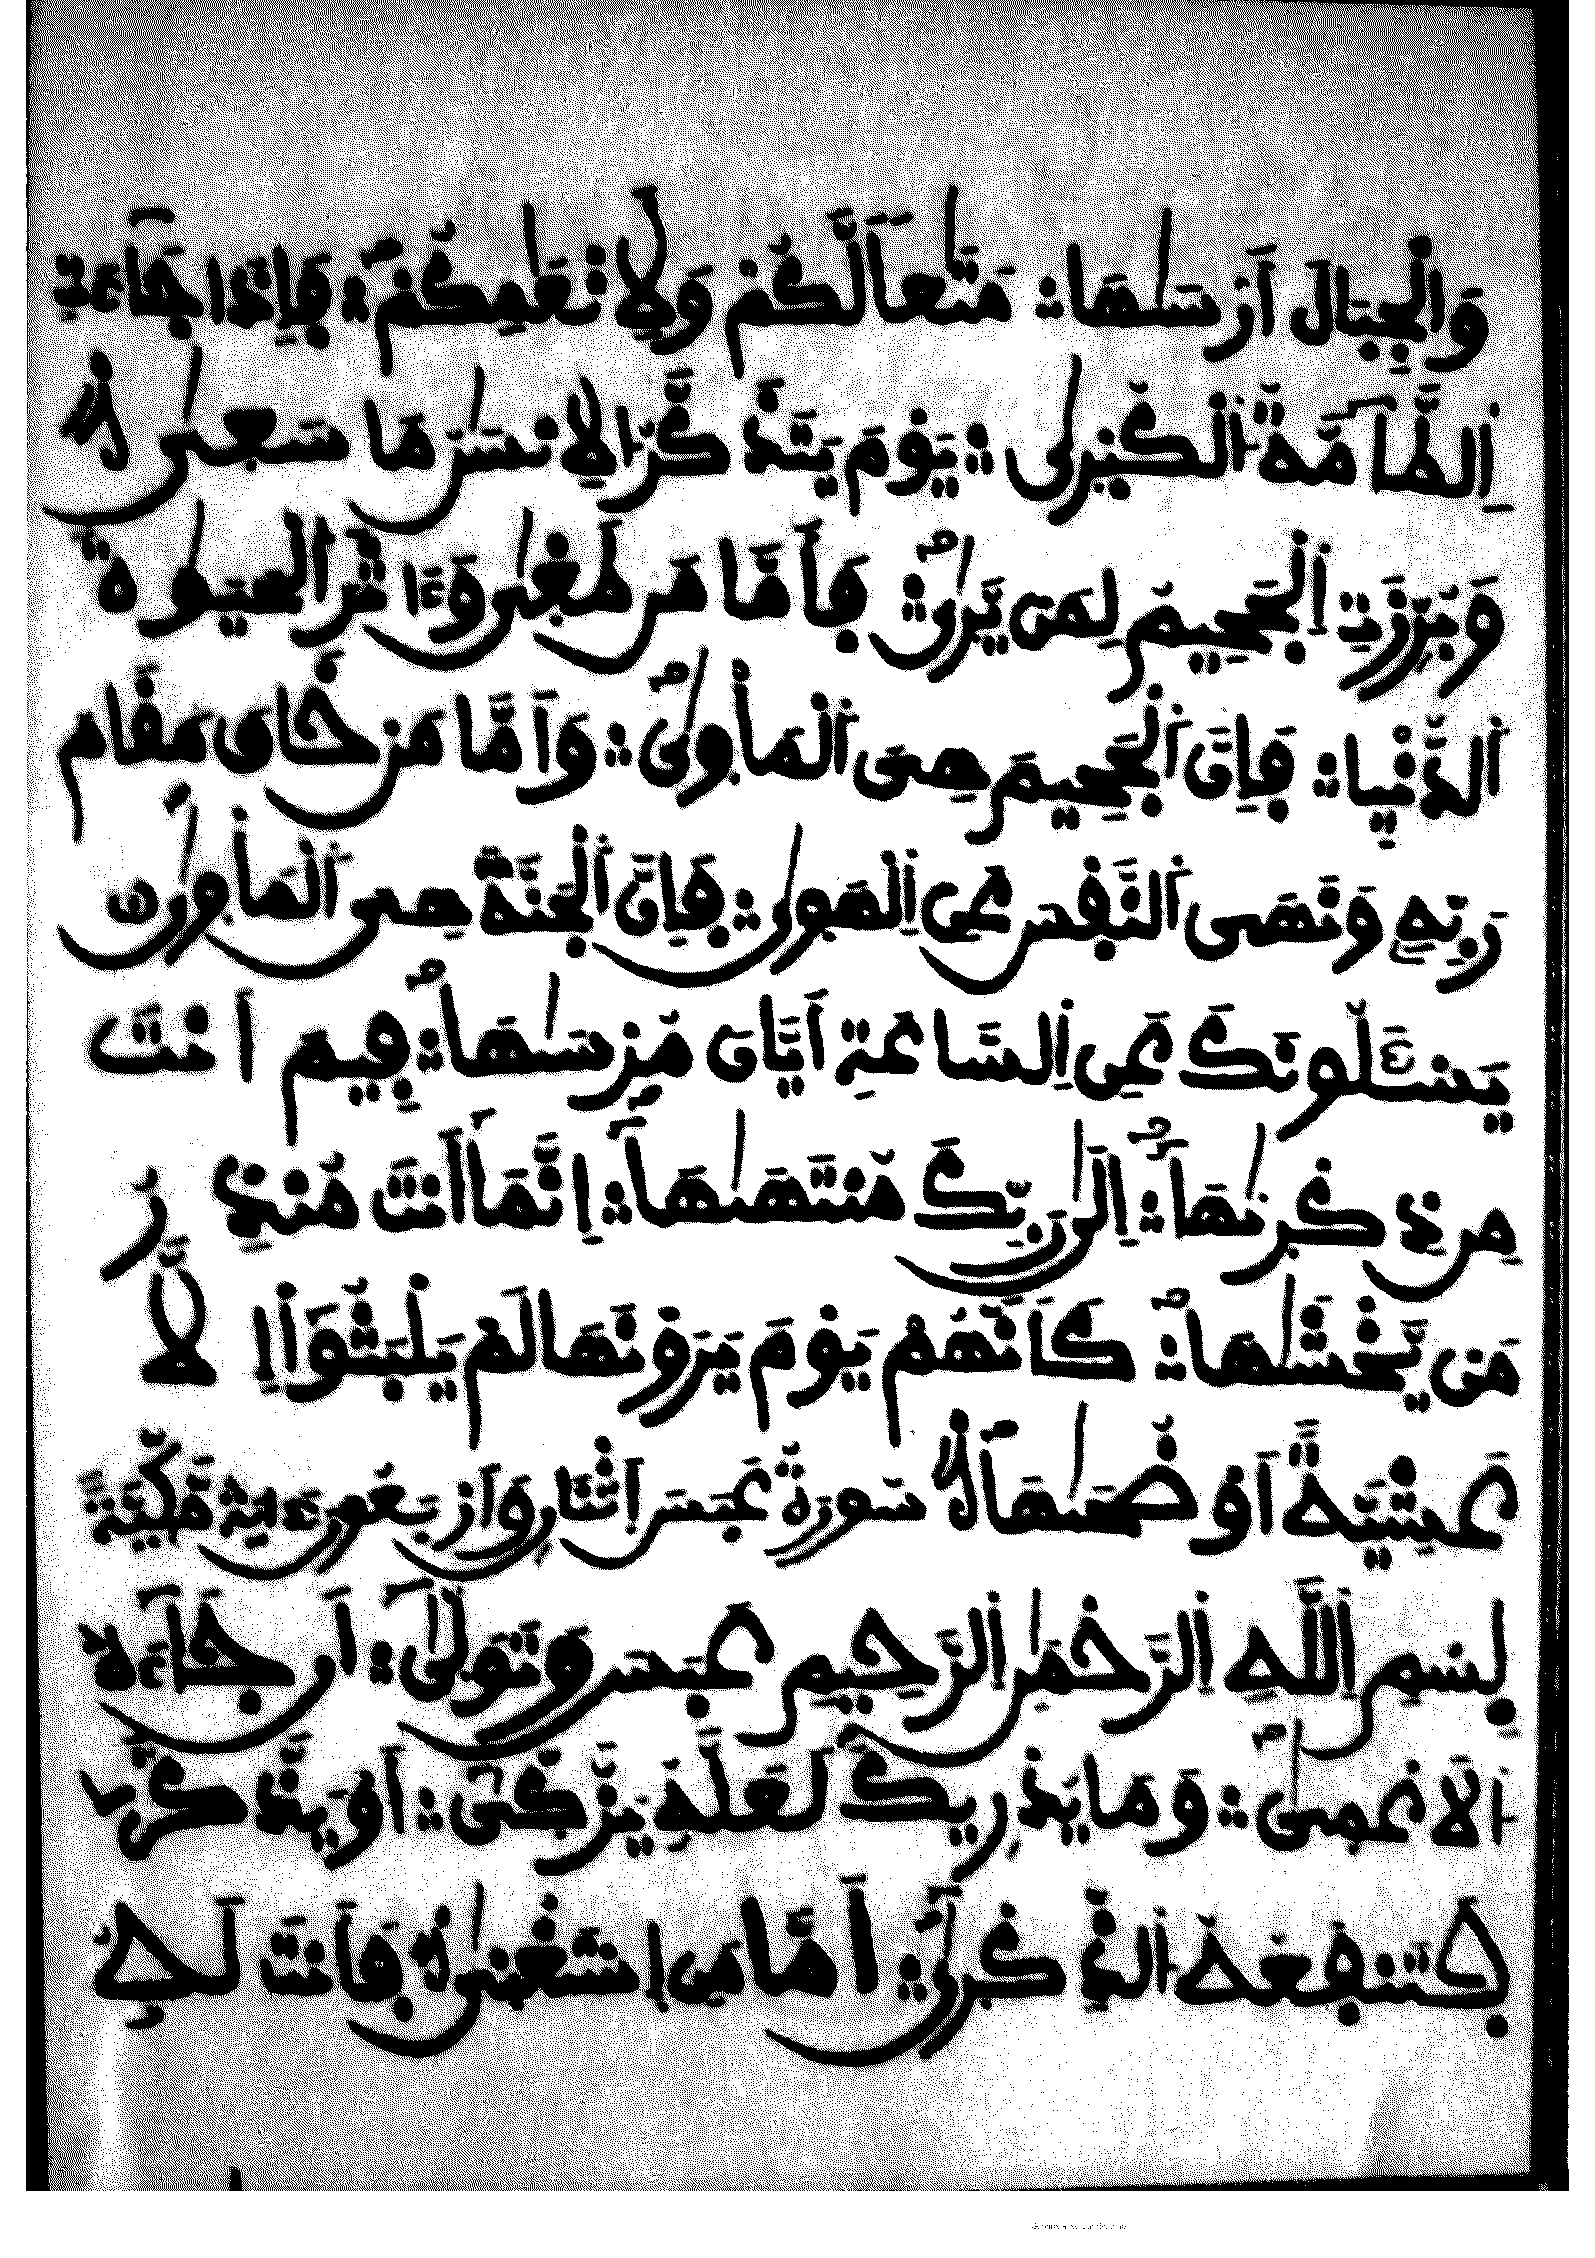 وَالْجِبَالَ أَرْسَىٰهَا ۝ مَتَٰعاً لَّكُمْ وَلِأَنْعَٰمِكُمْ ۝ فَإِذَا جَآءَتِ
اِلطَّآمَّةُ اُلْكُبْرَىٰ ۝ يَوْمَ يَتَذَكَّرُ اُلِانسَٰنُ مَا سَعَىٰ
وَبُرِّزَتِ اِلْجَحِيمُ لِمَن يَّرَىٰ ۝ فَأَمَّا مَن طَغَىٰ وَءَاثَرَ اَلْحَيَوٰةَ
اَلدُّنْيَا ۝ فَإِنَّ اَلْجَحِيمَ هِىَ اَلْمَأْوَىٰ ۝ وَأَمَّا مَنْ خَافَ مَقَامَ
رَبِّهِ وَنَهَى اَلنَّفْسَ عَنِ اِلْهَوَىٰ ۝ فَإِنَّ اَلْجَنَّةَ هِىَ اَلْمَأْوَىٰ
يَسْـَٔلُونَكَ عَنِ اِلسَّاعَةِ أَيَّانَ مُرْسَىٰهَا ۝ فِيمَ أَنتَ
مِن ذِكْرَىٰهَآ ۝ إِلَىٰ رَبِّكَ مُنتَهَىٰهَآ ۝ إِنَّمَآ أَنتَ مُنذِرُ
مَن يَّخْشَىٰهَا ۝ كَأَنَّهُمْ يَوْمَ يَرَوْنَهَا لَمْ يَلْبَثُوٓاْ إِلَّا
عَشِيَّةً أَوْ ضُحَىٰهَا سُورَةُ عَبَسَ اثنان وأربعون ءاية مَكِّيَّةٌ
بِسْمِ اِللَّهِ اِلرَّحْمَٰنِ اِلرَّحِيمِ عَبَسَ وَتَوَلَّىٰٓ ۝ أَن جَآءَهُ
اُلَاعْمَىٰ ۝ وَمَا يُدْرِيكَ لَعَلَّهُ يَزَّكَّىٰٓ ۝ أَوْ يَذَّكَّرُ
فَتَنفَعُهُ اُلذِّكْرَىٰٓ ۝ أَمَّا مَنِ اِسْتَغْنَىٰ فَأَنتَ لَهُ